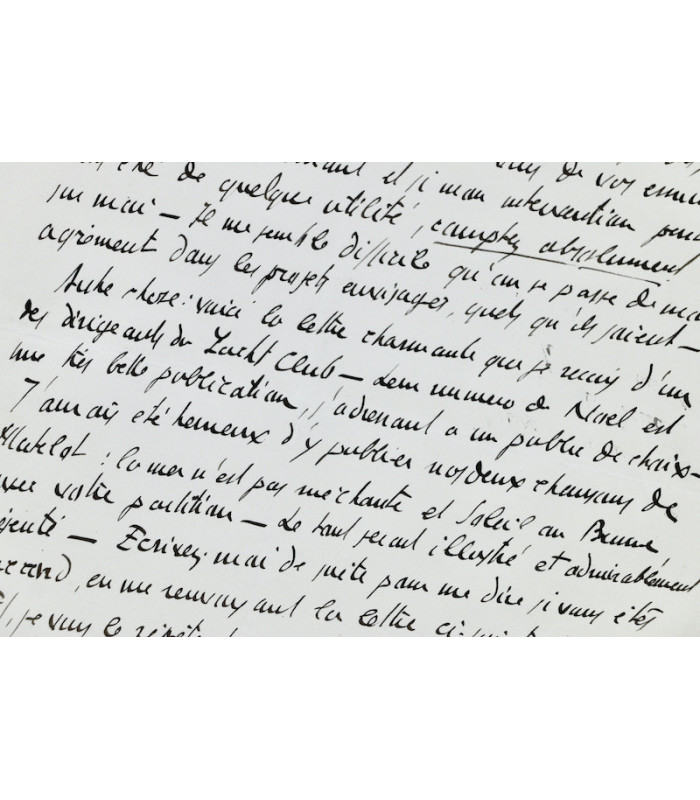 de quelque utilité, comptez absolument
sur moi – Il me semble difficile qu'on se passe de mon
agrément dans les projets envisagés, quels qu'ils soient –
Autre chose : voici la lettre charmante que je reçois d'un
des dirigeants du Yacht Club – Leur numéro de Noël est
une très belle publication, s'adressant à un public de choix –
J'aurais été heureux d'y publier nos deux chansons de
Matelot : la mer n'est pas méchante et Soleil au
avec votre partition – Le tout serait illustré et admirablement
Ecrivez-moi de suite pour me dire si vous êtes
en me renvoyant la lettre ci-
je vous le